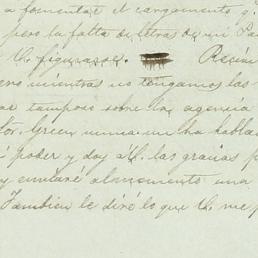 a fomentar el cargamento q
pero la falta de letras de mi Pa
U. figurarse. Recien
ero mientras no tengamos las
tampoco sobre la agencia
tor. Green nunca me ha habla
poder y doy á U. las gracias p
y enviaré al momento una
Tambien le diré lo que U. me p